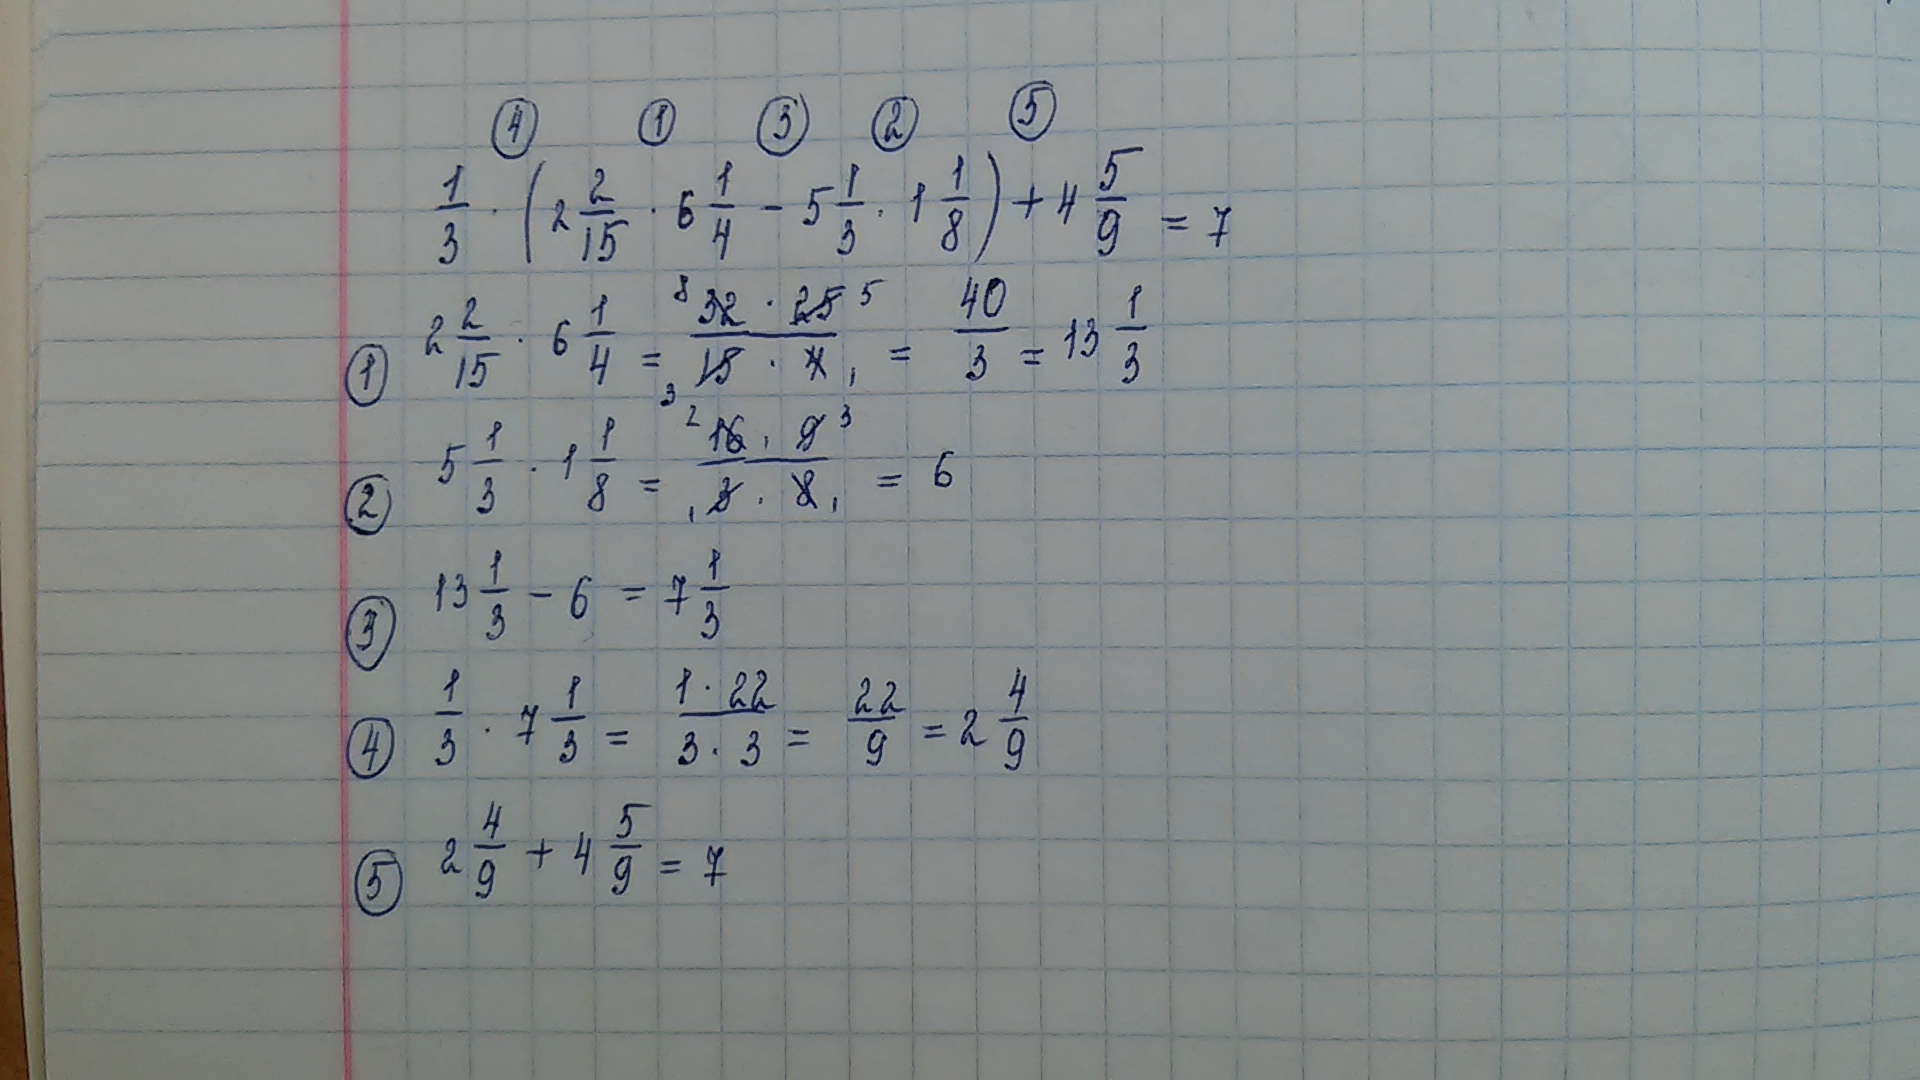 ④ ① ③ ② ⑤
1/3 · (2 2/15 · 6 1/4 - 5 1/3 · 1 1/8) + 4 5/9 = 7
① 2 2/15 · 6 1/4 = 8 32 · 25 5 / 3 15 · 4 1 = 40/3 = 13 1/3
② 5 1/3 · 1 1/8 = 2 16 · 9 3 / 1 3 · 8 1 = 6
③ 13 1/3 - 6 = 7 1/3
④ 1/3 · 7 1/3 = 1 · 22 / 3 · 3 = 22/9 = 2 4/9
⑤ 2 4/9 + 4 5/9 = 7